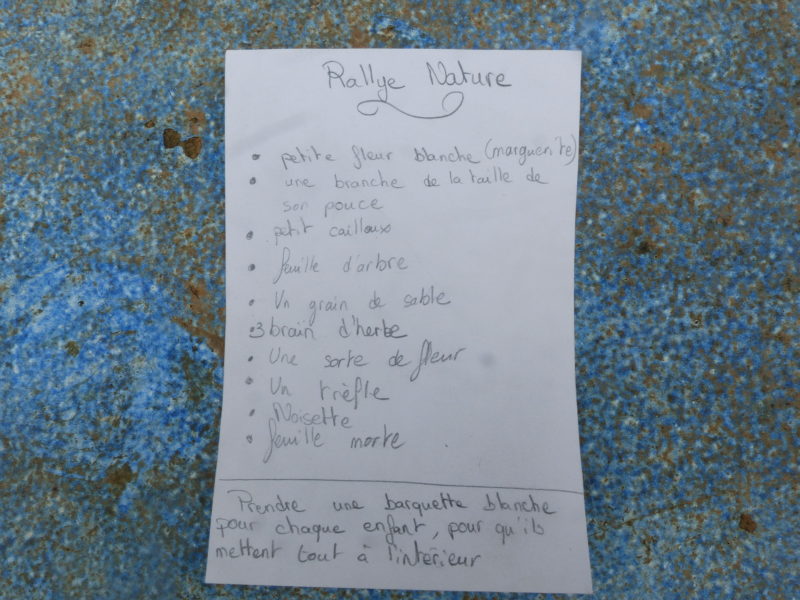 Rallye Nature
• petite fleur blanche (marguerite)
• une branche de la taille de
son pouce
• petit cailloux
• feuille d'arbre
• Un grain de sable
• 3 brain d'herbe
• Une sorte de fleur
• Un trèfle
• Noisette
• feuille morte
Prendre une barquette blanche
pour chaque enfant, pour qu'ils
mettent tout à l'intérieur